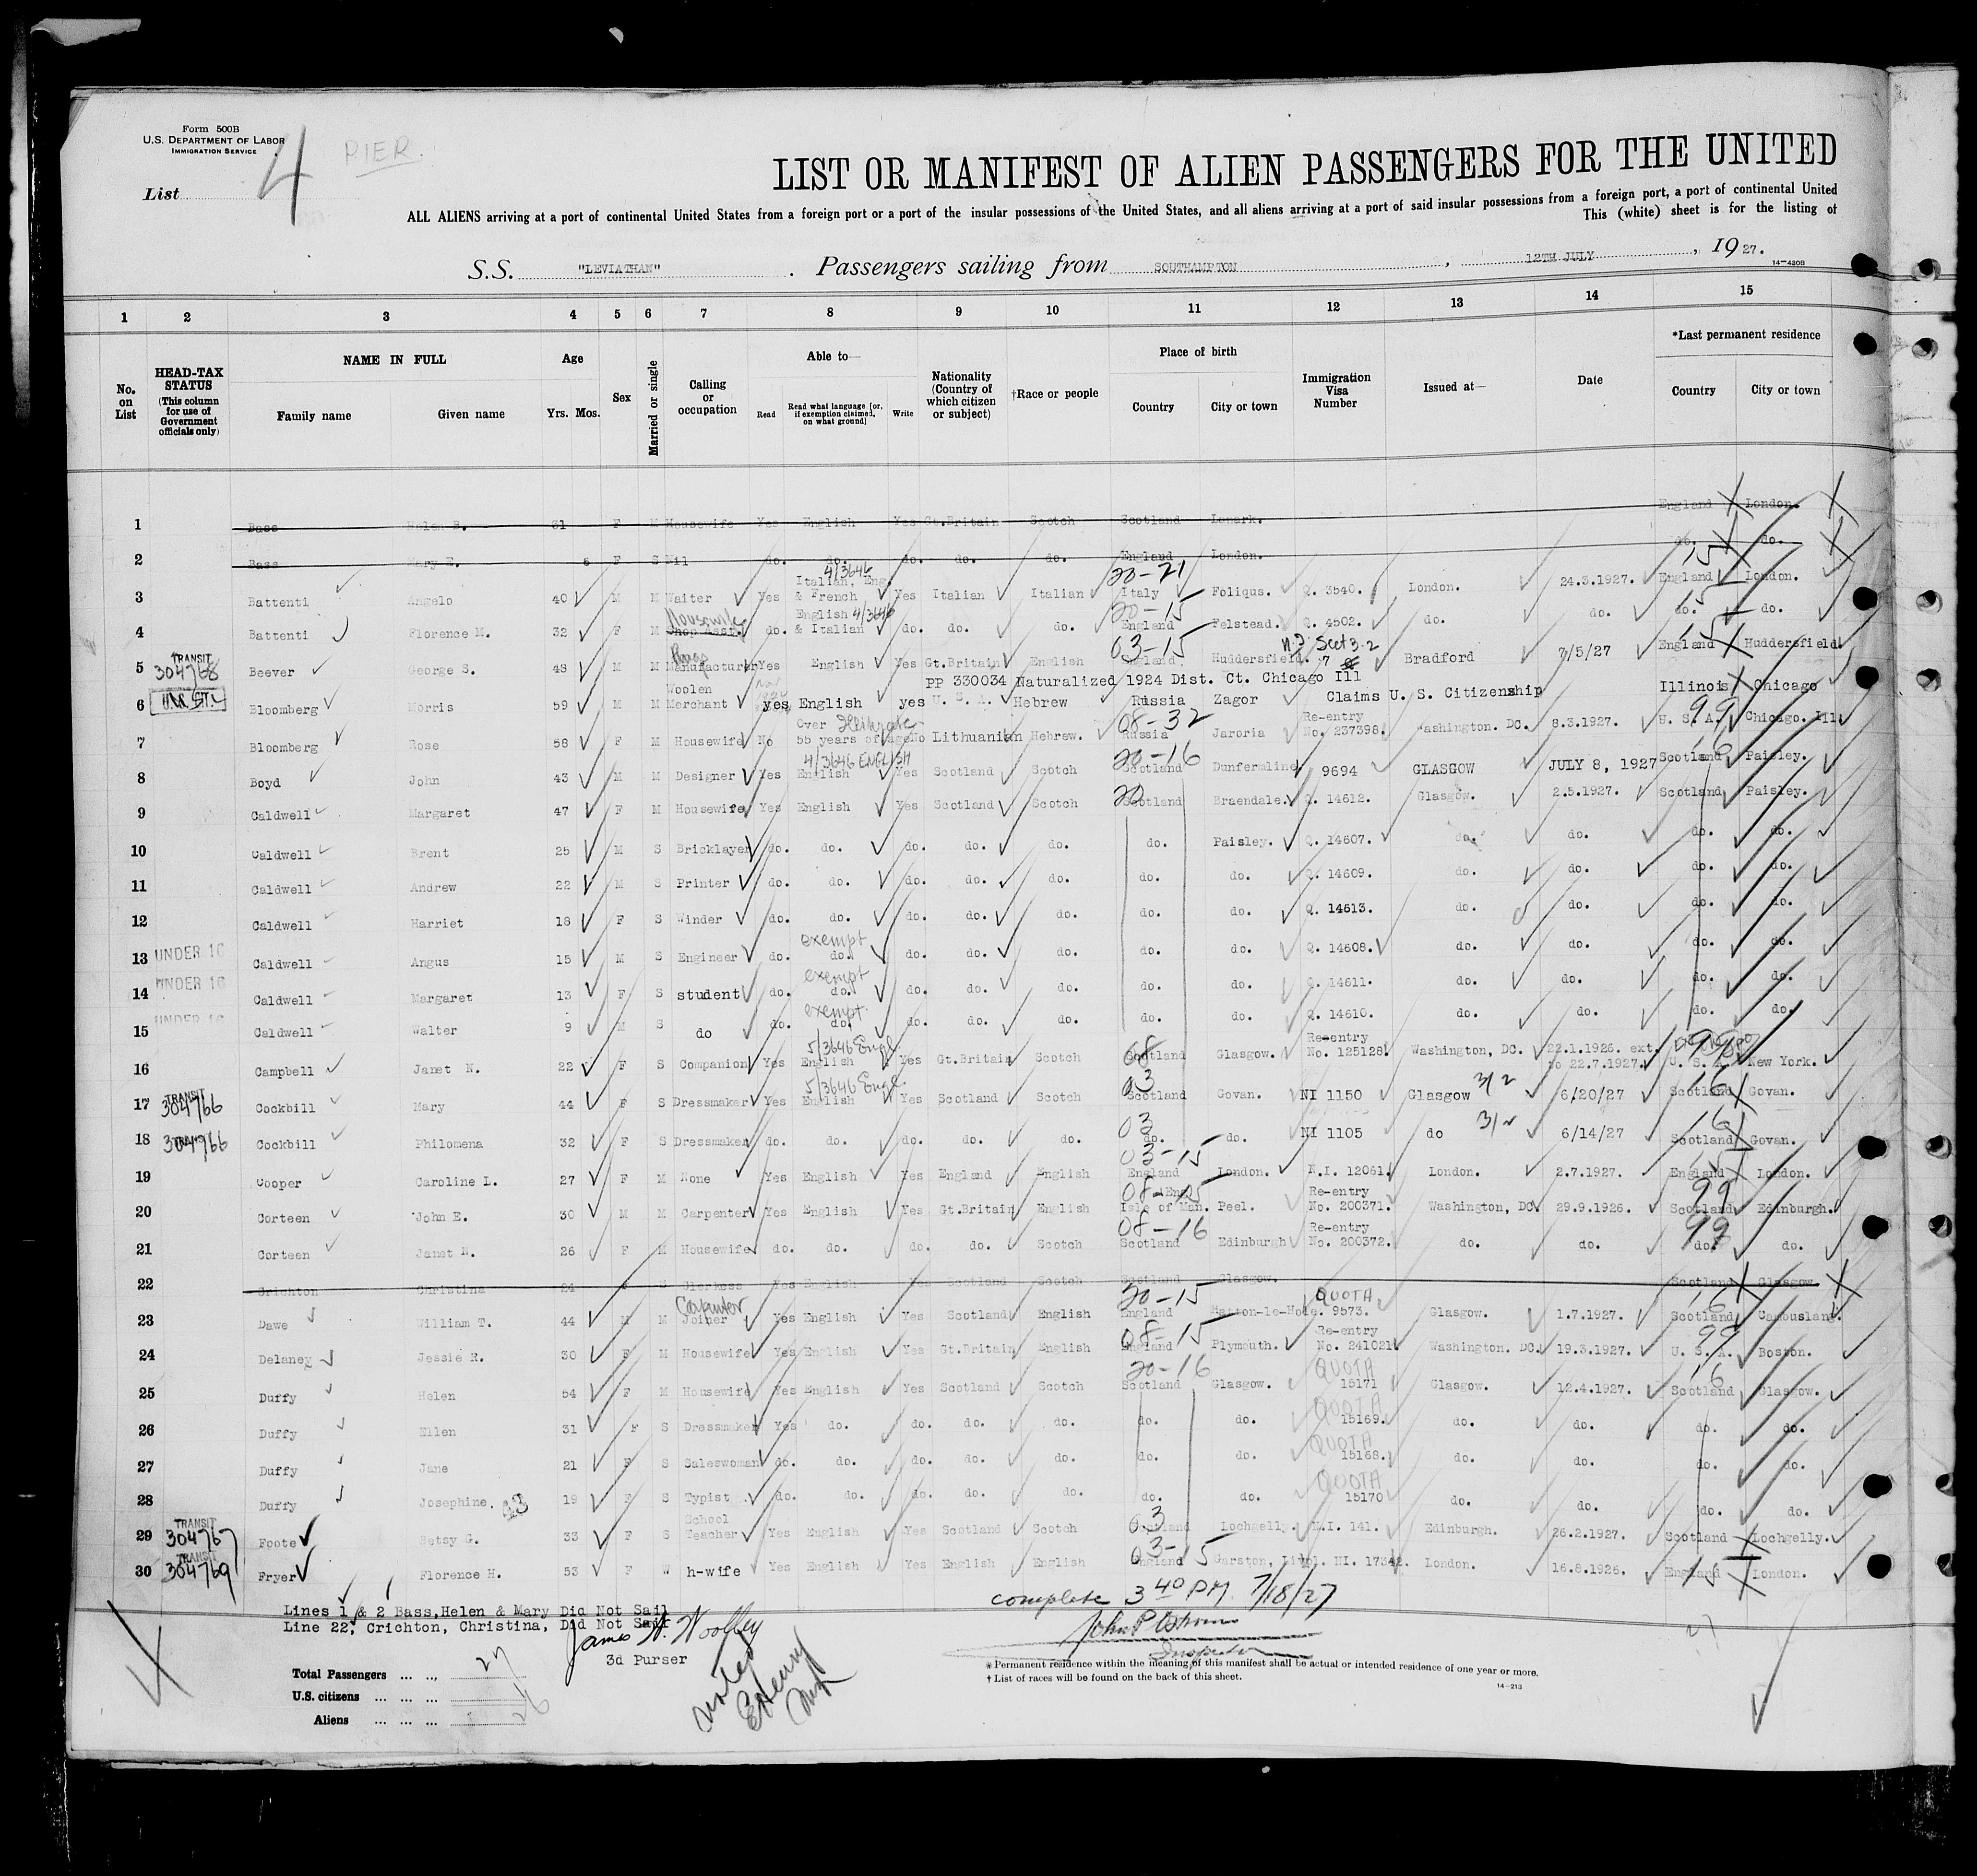 Form 500B
U.S. DEPARTMENT OF LABOR
IMMIGRATION SERVICE
4
PIER.
List
LIST OR MANIFEST OF ALIEN PASSENGERS FOR THE UNITED
ALL ALIENS arriving at a port of continental United States from a foreign port or a port of the insular possessions of the United States, and all aliens arriving at a port of said insular possessions from a foreign port, a port of continental United
This (white) sheet is for the listing of
S.S. "LEVIATHAN" . Passengers sailing from SOUTHAMPTON , 12TH JULY , 1927.
14-430B
1 2 3 4 5 6 7 8 9 10 11 12 13 14 15
No. on List
HEAD-TAX STATUS (This column for use of Government officials only)
NAME IN FULL
Family name Given name
Age
Yrs. Mos.
Sex
Married or single
Calling or occupation
Able to—
Read Read what language [or, if exemption claimed, on what ground] Write
Nationality (Country of which citizen or subject)
†Race or people
Place of birth
Country City or town
Immigration Visa Number
Issued at—
Date
*Last permanent residence
Country City or town
1 Bass Helen B. 31 F M Housewife Yes English Yes Gt.Britain Scotch Scotland Lanark. England London.
2 Bass Mary E. 6 F S Nil do. do. do. do. do. England London. do. do.
4/3646 20-21 15
3 Battenti Angelo 40 M M Waiter Yes Italian, Eng. & French Yes Italian Italian Italy Foliqus. Q. 3540. London. 24.3.1927. England London.
Housewife 4/3646 20-15 15
4 Battenti Florence M. 32 F M Shop Asst. do. English & Italian do. do. do. England Felstead. Q. 4502. do. do. do. do.
TRANSIT 304768 03-15 Sect 3-2 15
5 Beever George S. 48 M M Manufacturer Yes English Yes Gt.Britain English England. Huddersfield. 7 Bradford 7/5/27 England Huddersfield
PP 330034 Naturalized 1924 Dist. Ct. Chicago Ill
6 Bloomberg Morris 59 M M Woolen Merchant yes English yes U. S. A. Hebrew Russia Zagor Claims U. S. Citizenship Illinois Chicago
08-32 99
7 Bloomberg Rose 58 F M Housewife No Over 55 years of age No Lithuanian Hebrew. Russia Jaroria Re-entry No. 237398. Washington, DC. 8.3.1927. U. S. A. Chicago. Ill
4/3646 ENGLISH 20-16 16
8 Boyd John 43 M M Designer Yes English Yes Scotland Scotch Scotland Dunfermline 9694 GLASGOW JULY 8, 1927 Scotland Paisley.
20
9 Caldwell Margaret 47 F M Housewife Yes English Yes Scotland Scotch Scotland Braendale. Q. 14612. Glasgow. 2.5.1927. Scotland Paisley.
10 Caldwell Brent 25 M S Bricklayer do. do. do. do. do. do. Paisley. Q. 14607. do. do. do. do.
11 Caldwell Andrew 22 M S Printer do. do. do. do. do. do. do. Q. 14609. do. do. do. do.
12 Caldwell Harriet 18 F S Winder do. do. do. do. do. do. do. Q. 14613. do. do. do. do.
exempt
13 UNDER 16 Caldwell Angus 15 M S Engineer do. do. do. do. do. do. do. Q. 14608. do. do. do. do.
exempt
14 UNDER 16 Caldwell Margaret 13 F S student do. do. do. do. do. do. do. Q. 14611. do. do. do. do.
exempt
15 UNDER 16 Caldwell Walter 9 M S do do. do. do. do. do. do. do. Q. 14610. do. do. do. do.
5/3646 Engl. 08 99
16 Campbell Janet N. 22 F S Companion Yes English Yes Gt.Britain Scotch Scotland Glasgow. Re-entry No. 125128. Washington, DC. 22.1.1926. ext. to 22.7.1927. U. S. A. New York.
TRANSIT 304766 5/3646 Engl. 03 3/2 16
17 Cockbill Mary 44 F S Dressmaker Yes English Yes Scotland Scotch Scotland Govan. NI 1150 Glasgow 6/20/27 Scotland Govan.
304766 03 3/2 16
18 Cockbill Philomena 32 F S Dressmaker do. do. do. do. do. do. do. NI 1105 do 6/14/27 Scotland Govan.
03-15 15
19 Cooper Caroline L. 27 F M None Yes English Yes England English England London. N.I. 12061. London. 2.7.1927. England London.
08-15 99
20 Corteen John E. 30 M M Carpenter Yes English Yes Gt.Britain English Isle of Man. Peel. Re-entry No. 200371. Washington, DC. 29.9.1926. Scotland Edinburgh.
08-16 99
21 Corteen Janet N. 26 F M Housewife do. do. do. do. Scotch Scotland Edinburgh Re-entry No. 200372. do. do. do. do.
22 Crichton Christina 24 F S Clerkess Yes English Yes Scotland Scotch Scotland Glasgow. Scotland Glasgow
Carpenter 20-15 QUOTA 16
23 Dawe William T. 44 M M Joiner Yes English Yes Scotland English England Hatton-le-Hole. 9573. Glasgow. 1.7.1927. Scotland Cambuslang.
08-15 99
24 Delaney Jessie R. 30 F M Housewife Yes English Yes Gt.Britain English England Plymouth. Re-entry No. 241021 Washington. DC. 19.3.1927. U. S. A. Boston.
20-16 QUOTA 16
25 Duffy Helen 54 F M Housewife Yes English Yes Scotland Scotch Scotland Glasgow. 15171 Glasgow. 12.4.1927. Scotland Glasgow.
QUOTA
26 Duffy Ellen 31 F S Dressmaker Yes do. do. do. do. do. do. 15169. do. do. do. do.
QUOTA
27 Duffy Jane 21 F S Saleswoman do. do. do. do. do. do. do. 15168. do. do. do. do.
QUOTA
28 Duffy Josephine. 19 F S Typist do. do. do. do. do. do. do. 15170 do. do. do. do.
TRANSIT 304767 03
29 Foote Betsy G. 33 F S School Teacher Yes English Yes Scotland Scotch Scotland Lochgelly. N.I. 141. Edinburgh. 26.2.1927. Scotland Lochgelly.
TRANSIT 304769 03-15 15
30 Fryer Florence H. 53 F W h-wife Yes English Yes English English England Garston, Livpl. NI. 17342. London. 16.8.1926. England London.
Lines 1 & 2 Bass,Helen & Mary Did Not Sail
Line 22, Crichton, Christina, Did Not Sail
James H. Woolley
3d Purser
complete 3 40 PM 7/18/27
Inspector
Total Passengers 27
U.S. citizens
Aliens
* Permanent residence within the meaning of this manifest shall be actual or intended residence of one year or more.
† List of races will be found on the back of this sheet.
14-213